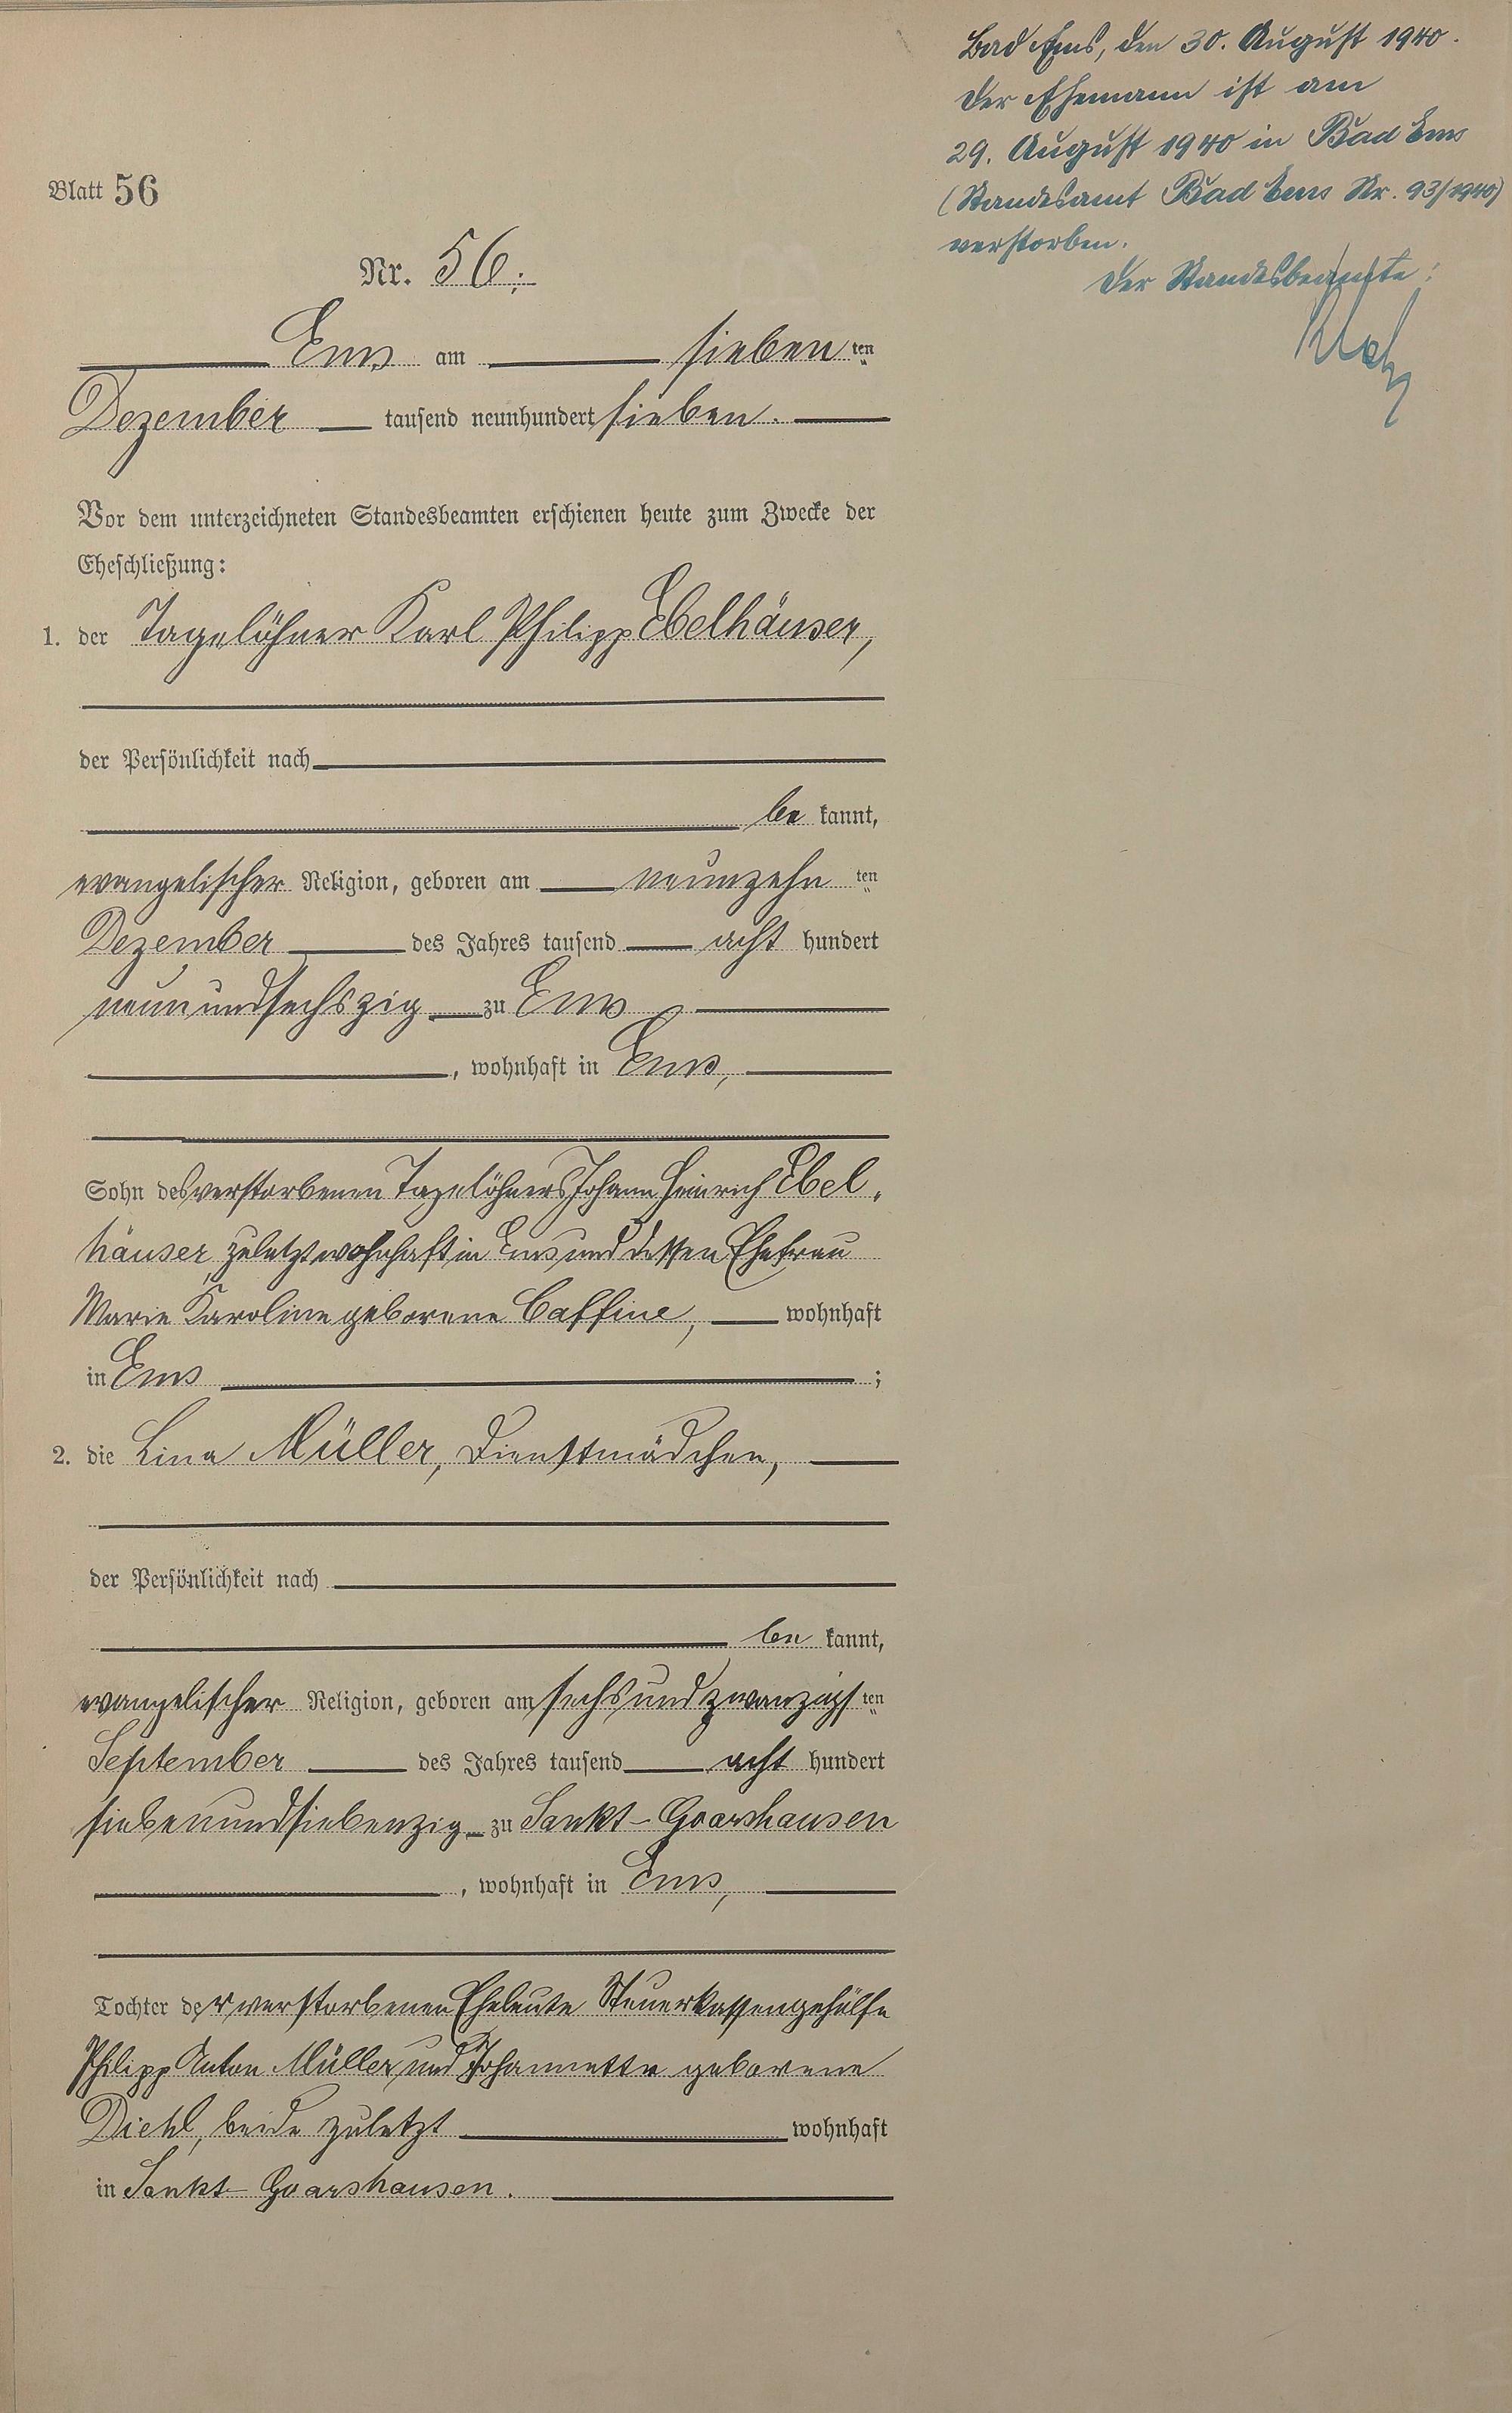 Blatt 56
Nr. 56.
Ems am sieben ten
Dezember tausend neunhundert sieben.
Vor dem unterzeichneten Standesbeamten erschienen heute zum Zwecke der
Eheschließung:
1. der Tagelöhner Karl Philipp Ebelhäuser,
der Persönlichkeit nach
be kannt,
evangelischer Religion, geboren am neunzehn ten
Dezember des Jahres tausend acht hundert
neunundsechszig zu Ems
, wohnhaft in Ems,
Sohn des verstorbenen Tagelöhners Johann Heinrich Ebel-
häuser, zuletzt wohnhaft in Ems und dessen Ehefrau
Marie Karoline geborene Caffine, wohnhaft
in Ems ;
2. die Lina Müller, Dienstmädchen,
der Persönlichkeit nach
be kannt,
evangelischer Religion, geboren am sechsundzwanzigs ten
September des Jahres tausend acht hundert
siebenundsiebenzig zu Sankt-Goarshausen
, wohnhaft in Ems,
Tochter der verstorbenen Eheleute Steuerkassengehülfe
Philipp Anton Müller und Johannette geborene
Diehl, beide zuletzt wohnhaft
in Sankt-Goarshausen.
Bad Ems, den 30. August 1940.
Der Ehemann ist am
29. August 1940 in Bad Ems
(Standesamt Bad Ems Nr. 93/1940)
verstorben.
Der Standesbeamte: